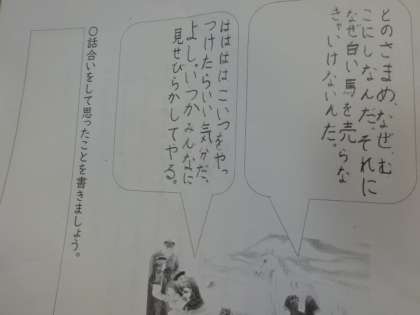 とのさまめ、なぜ、む
こにしなんだ。それに
なぜ白い馬を売らな
きゃいけないんだ。
はははは こいつをやっ
つけたらいい気分だ。
よし。いつかみんなに
見せびらかしてやる。
○話合いをして思ったことを書きましょう。